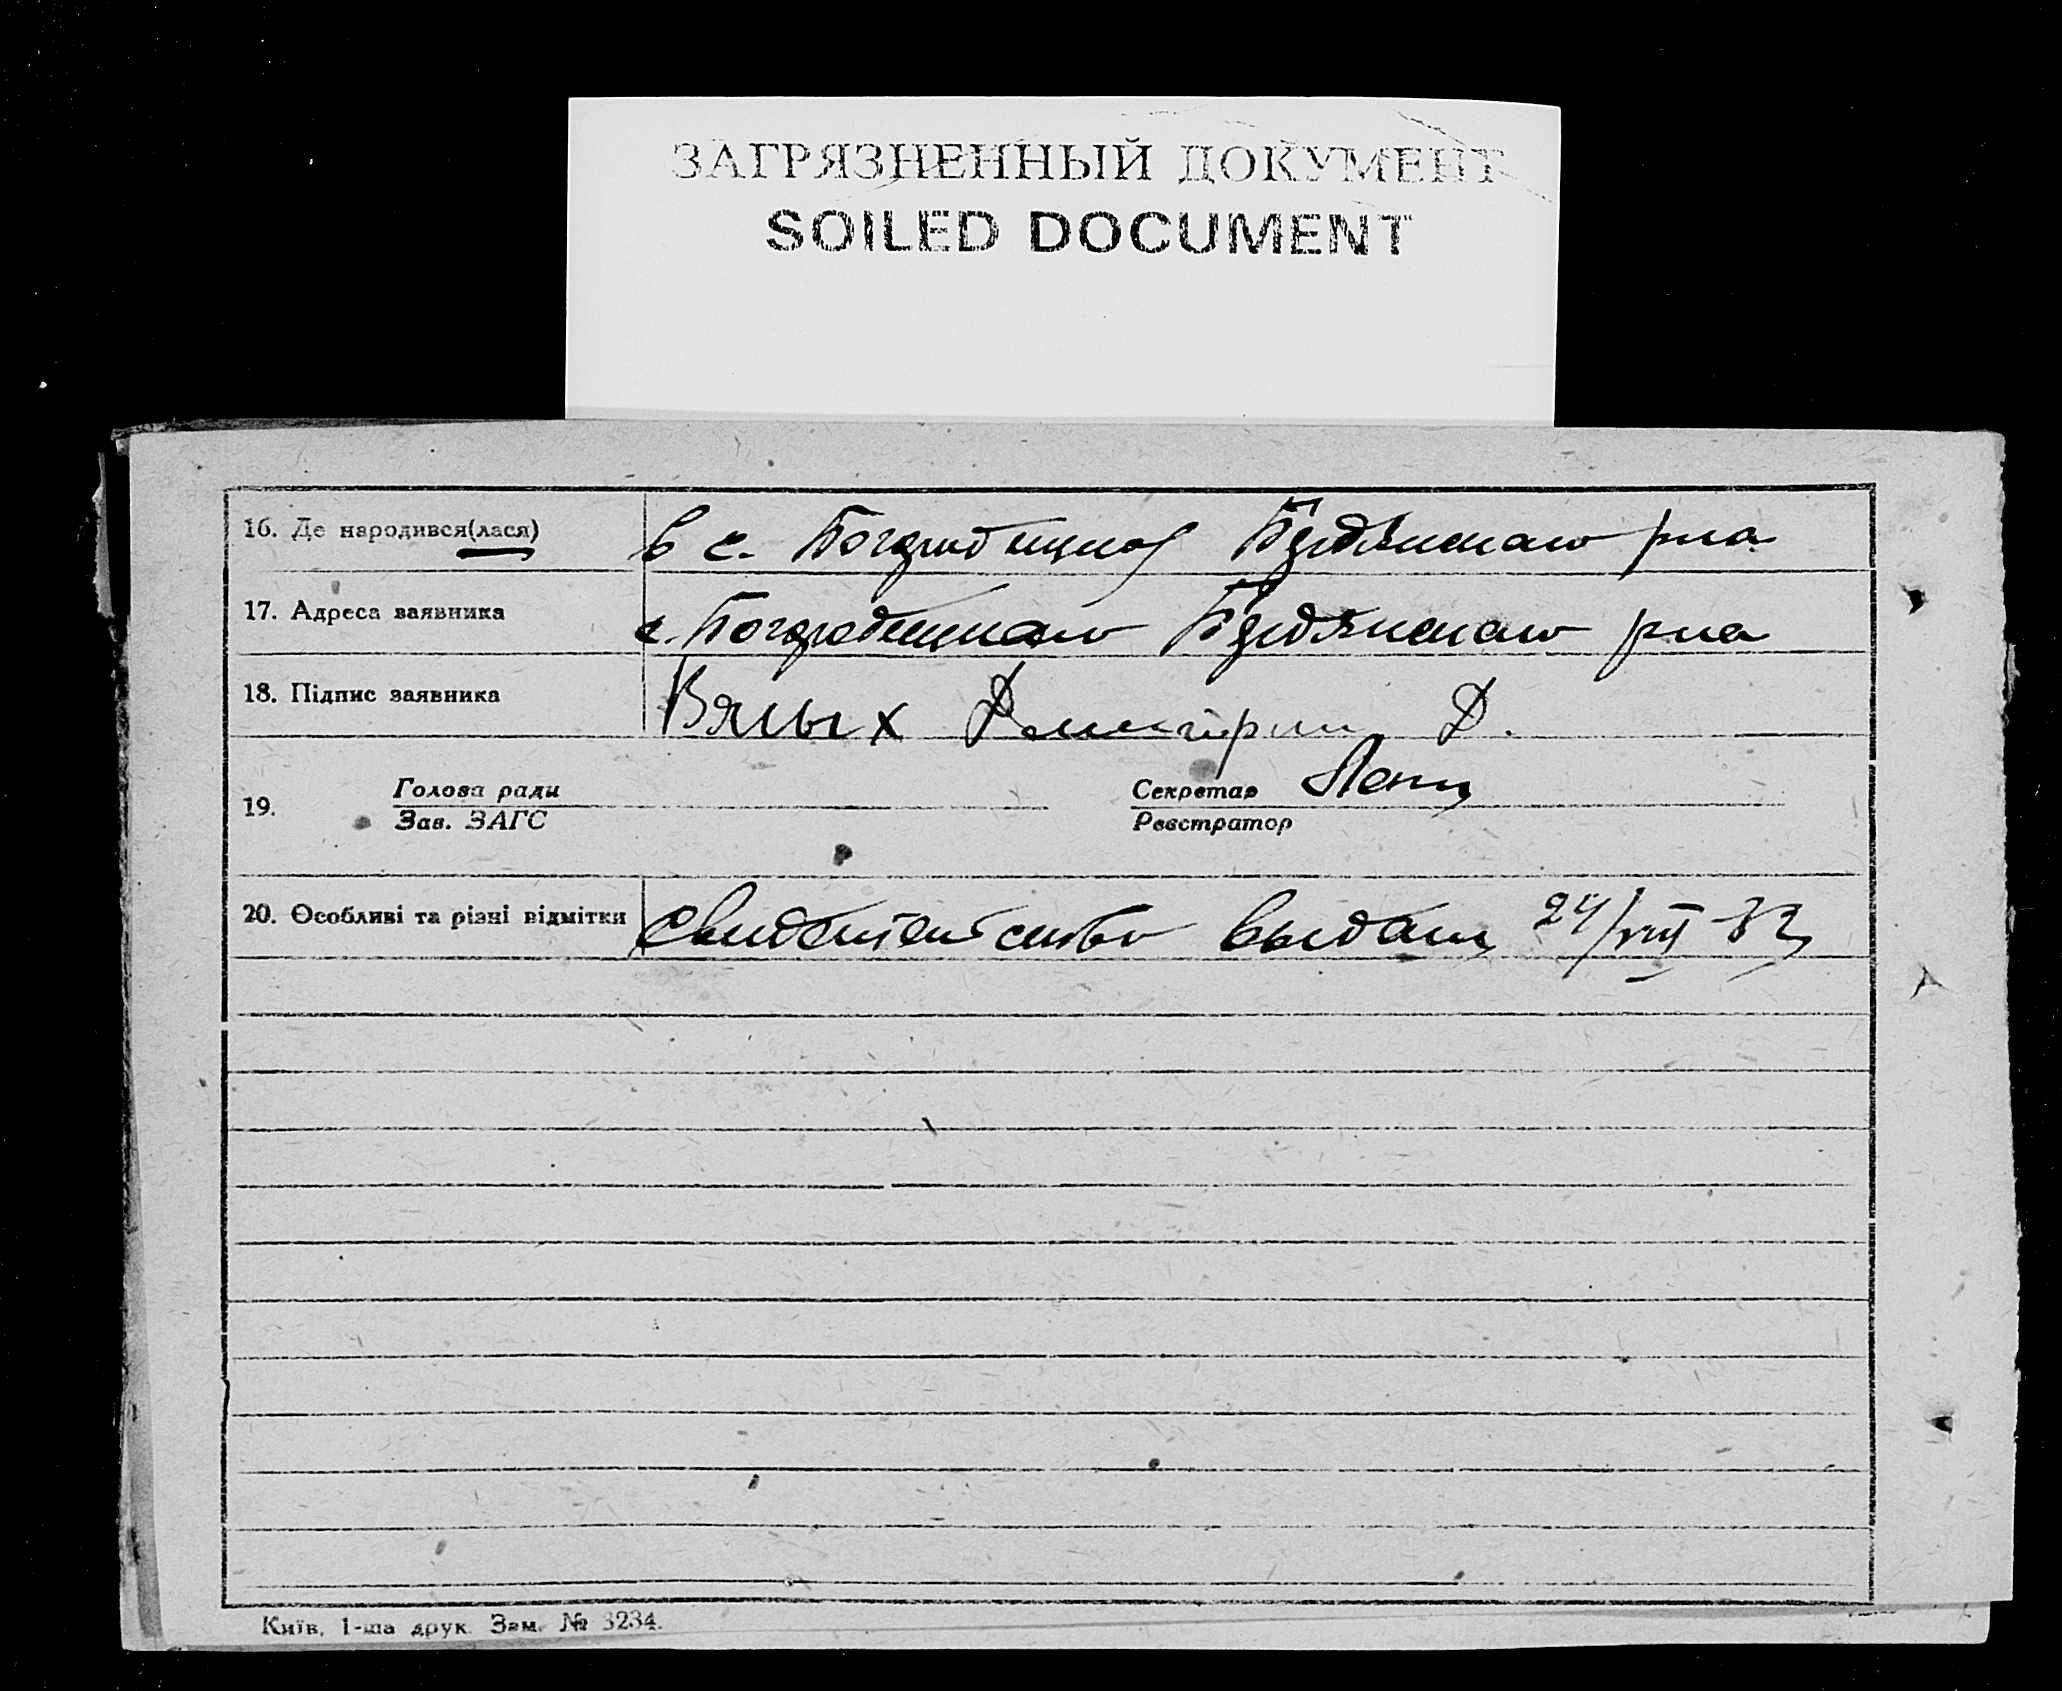 ЗАГРЯЗНЕННЫЙ ДОКУМЕНТ
SOILED DOCUMENT
16. Де народився(лася) в с. р-на
17. Адреса заявника с. р-на
18. Підпис заявника Вялых Дмитрий Д.
19. Голова ради Секретар
Зав. ЗАГС Реєстратор
20. Особливі та різні відмітки свидетельство выдан 24/VIII-33
Київ, 1-ша друк. Зам. № 3234.